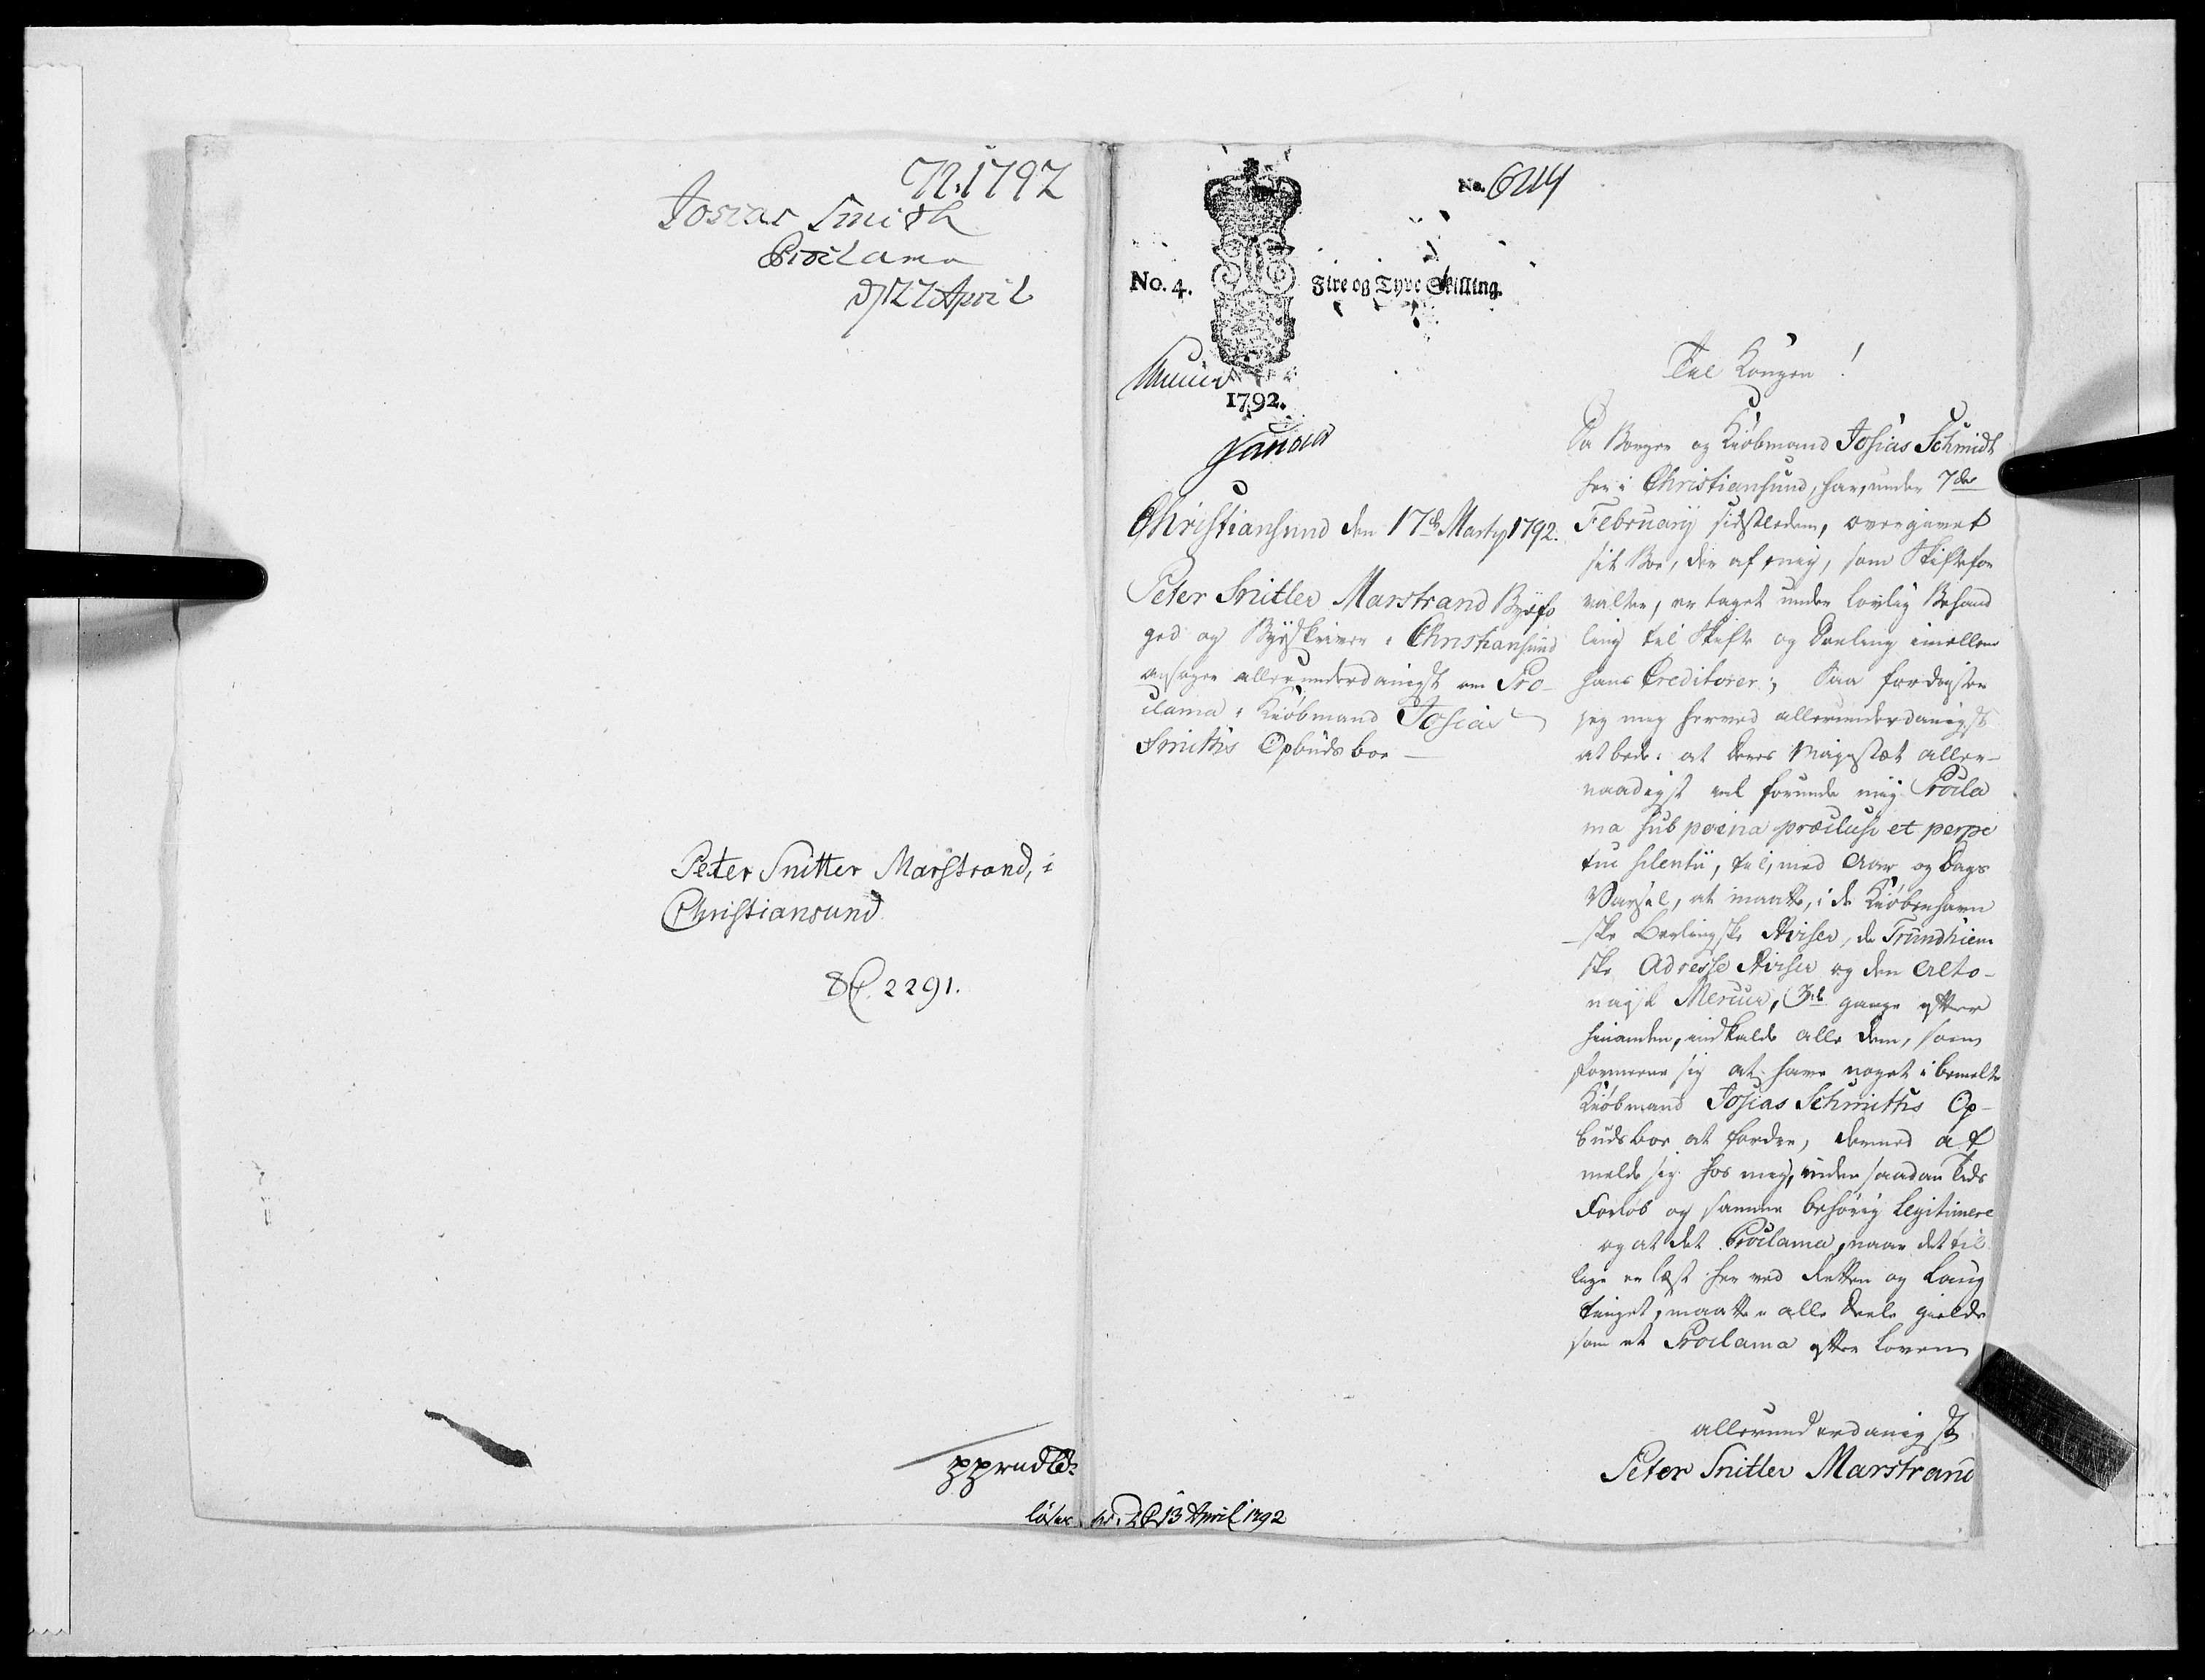 N. 1792
Josias Smith
Proclama
d 27 April
Peter Snitter Marstrand, i
Christiansund
2291.
d 13 April 1792
No. 6214
No. 4. Fire og Tyve Skilling.
1792.
Christiansund den 17de Marty 1792.
Peter Snitler Marstrand Byefo
ged og Byeskriver i Christiansund
ansøger allerunderdanigst om Pro-
clama i Kiøbmand Josias
Smiths Opbudsboe
Til Kongen!
Da Borger og Kiøbmand Josias Schmidt
her i Christiansund, har, under 7de
February sidstleden, overgivet
sit Boe, der af mig, som Skiftefor
valter, er taget under lovlig Behand
ling til Skifte og Deeling imellem
hans Creditorer; Saa fordrister
jeg mig herved allerunderdanigst
at bede: at Deres Majestæt aller-
naadigst vil forunde mig Procla
ma sub poena præclusi et perpe
tui silentii, til, med Aar og Dags
Varsel, at maatte, i de Kiøbenhavn
ske Berlingske Aviser, de Trundhiem
ske Adresse Aviser og den Alto-
naisk Mercur, 3de gange efter
hinanden, indkalde alle dem, som
formeener sig at have noget i bemelte
Kiøbmand Josias Schmiths Op-
budsboe at fordre, dermed at
melde sig hos mig, inden saadan Tids
Forløb og samme behørig legitimere
og at det Proclama, naar det til
lige er læst her ved Retten og Laug
tinget, maatte i alle Deele gielde
som et Proclama efter Loven
allerunderdanigst
Peter Snitler Marstrand